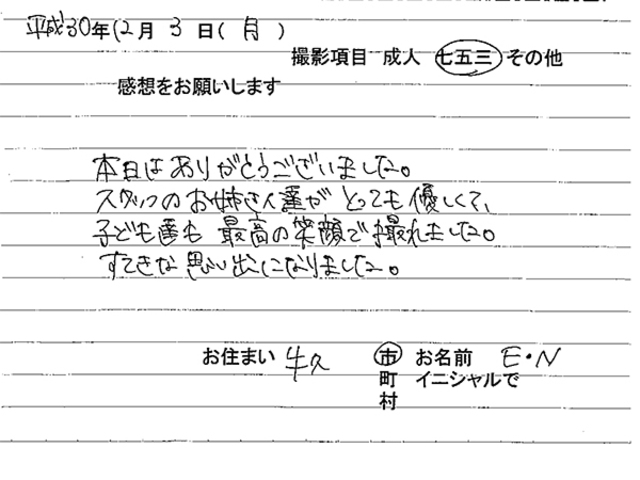 平成30年12月3日(月)
撮影項目 成人 七五三 その他
感想をお願いします
本日はありがとうございました。
スタッフのお姉さん達がとっても優しくて、
子ども達も最高の笑顔で撮れました。
すてきな思い出になりました。
お住まい 牛久 市 お名前 E・N
町 イニシャルで
村